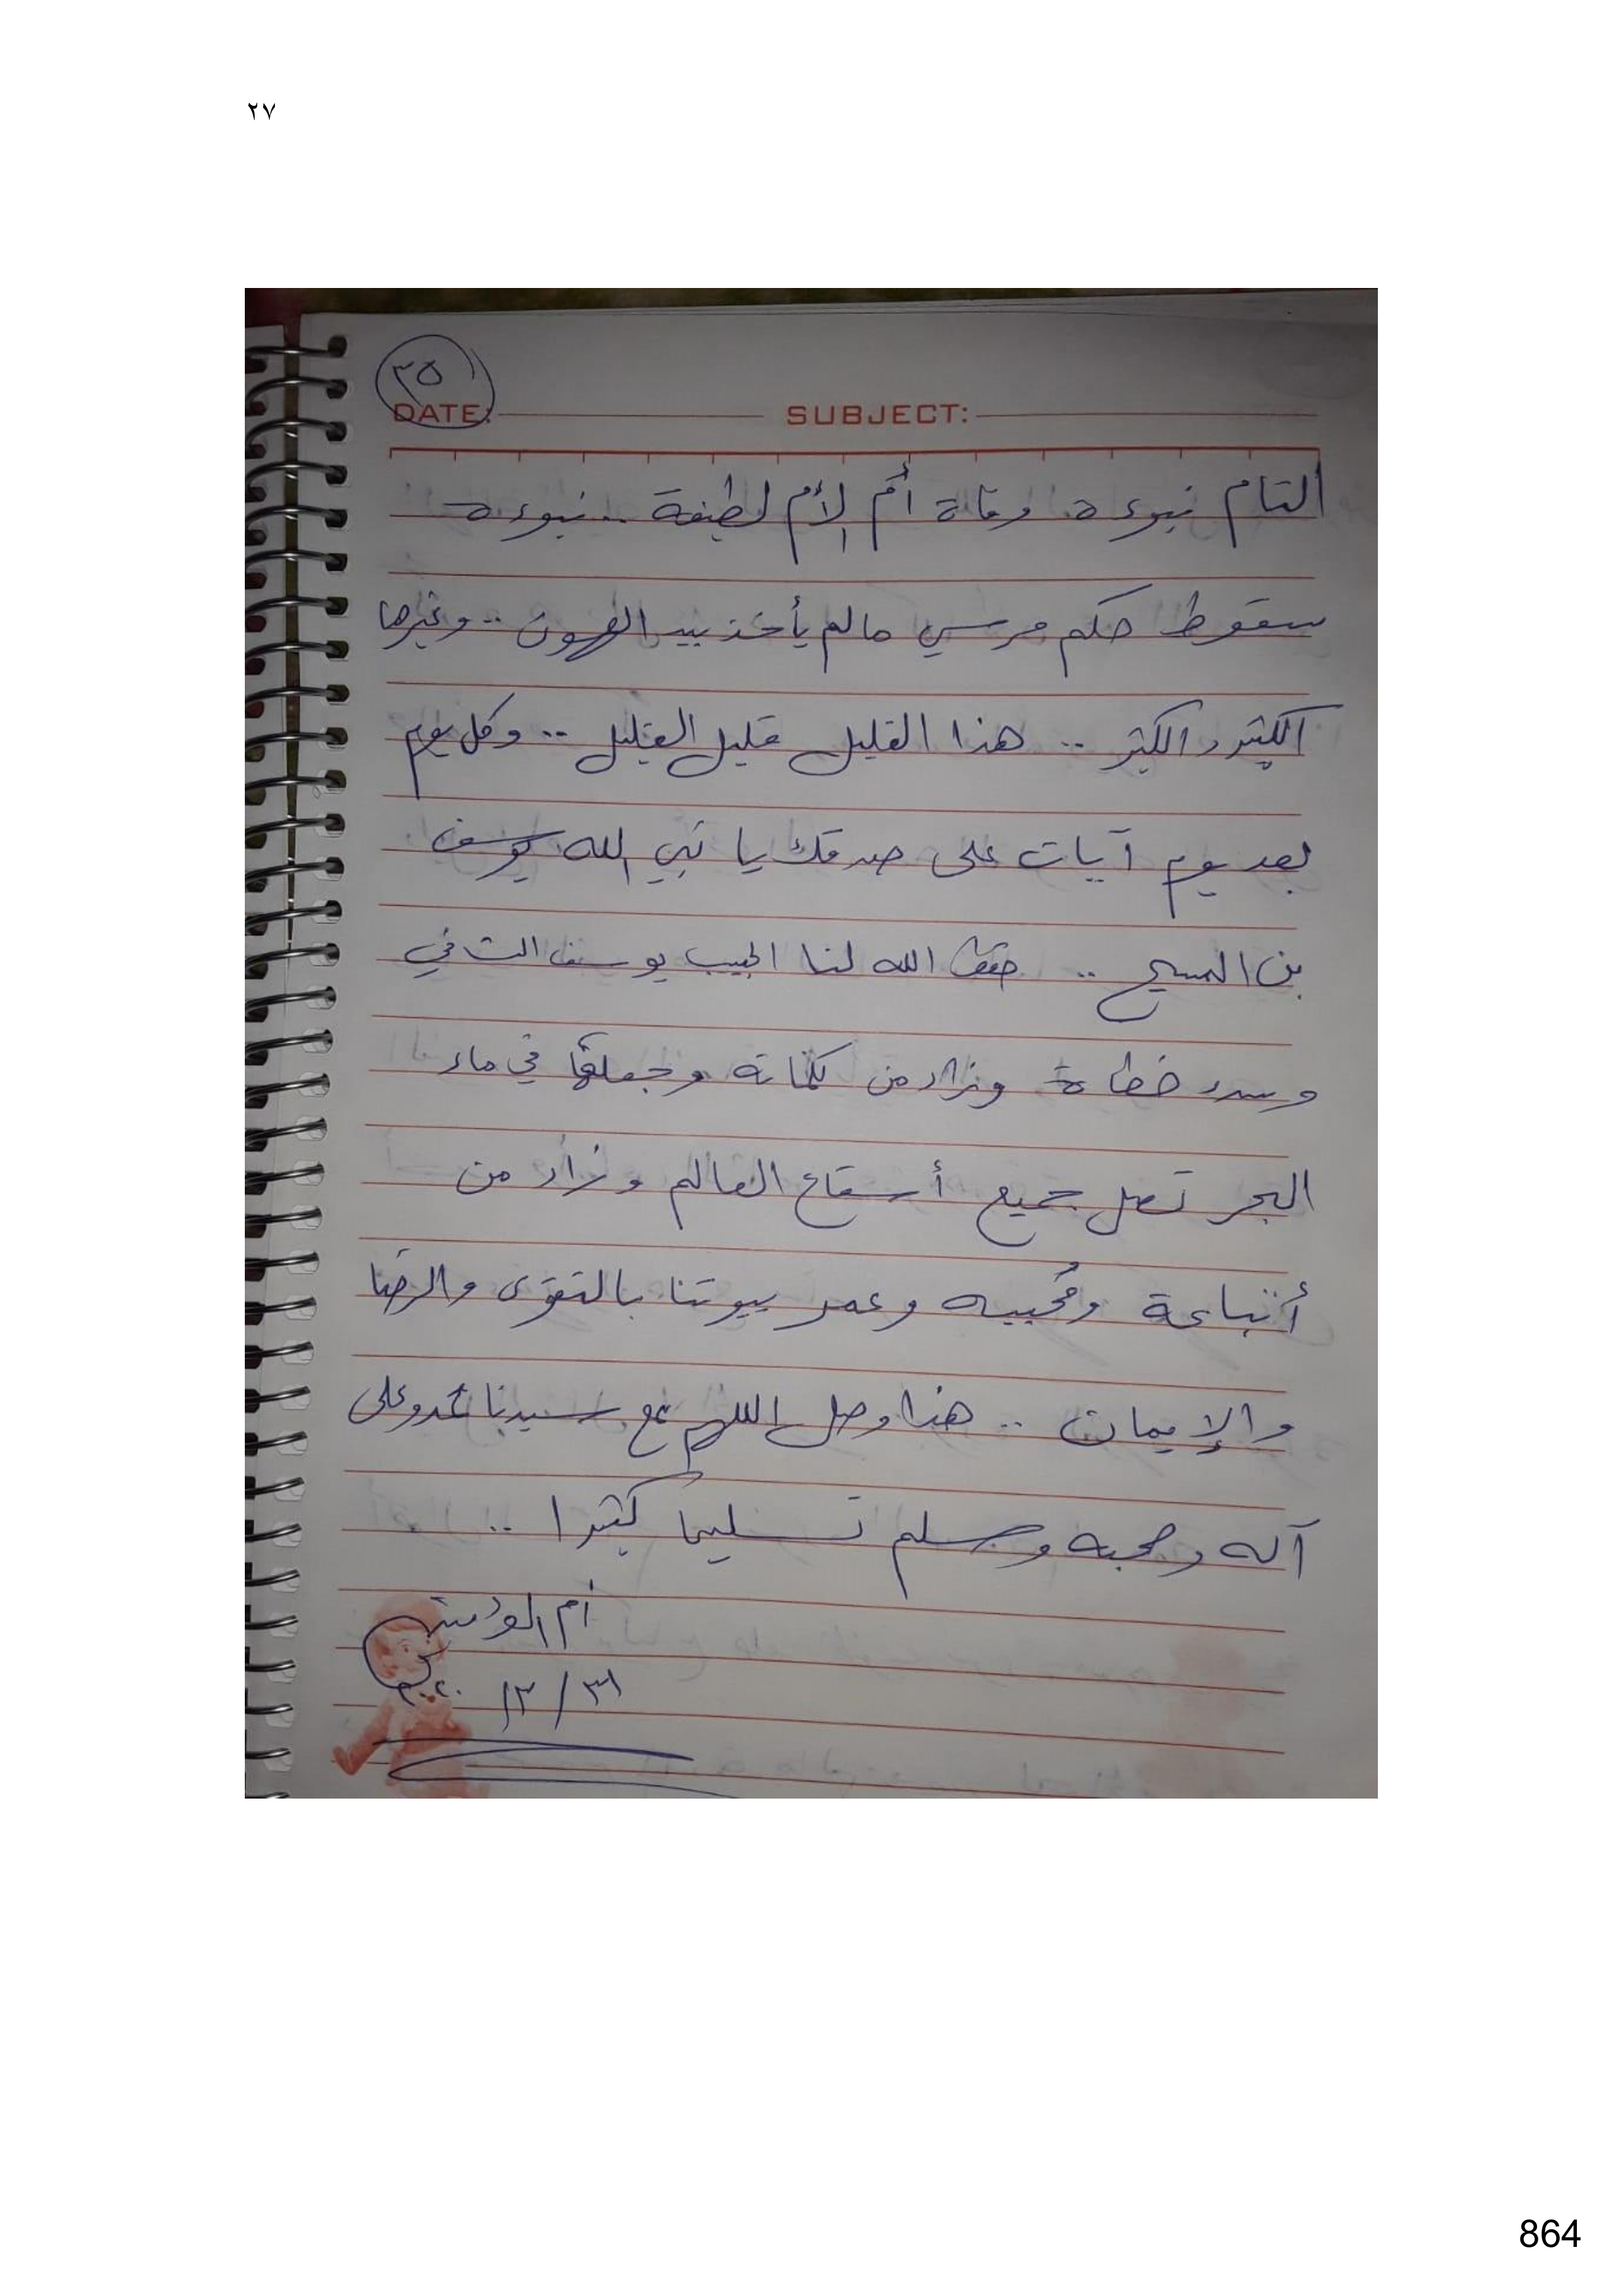 ٢٧
٢٥
DATE: SUBJECT:
التام نبوءة وفاة أم الأم لطيفة .. نبوءة
سقوط حكم مرسي مالم يأخذ بيد العهون .. وغيرها
الكثير والكثير .. هذا القليل قليل القليل .. وكل يوم
بعد يوم آيات على صدقك يا نبي الله يوسف
بن المسيح .. حفظ الله لنا الحبيب يوسف الثاني
وسدد خطاة وزاد من كلماته وجعلها في ماء
البحر تصل جميع أسقاع العالم وزاد من
أتباعة ومحبيه وعمر بيوتنا بالتقوى والرضا
والإيمان .. هذا وصل اللهم على سيدنا محمد وعلى
آله وصحبه وسلم تسليما كثيرا ..
أم المؤمنين
٣١ / ١٢ ٢٠٢٠
864